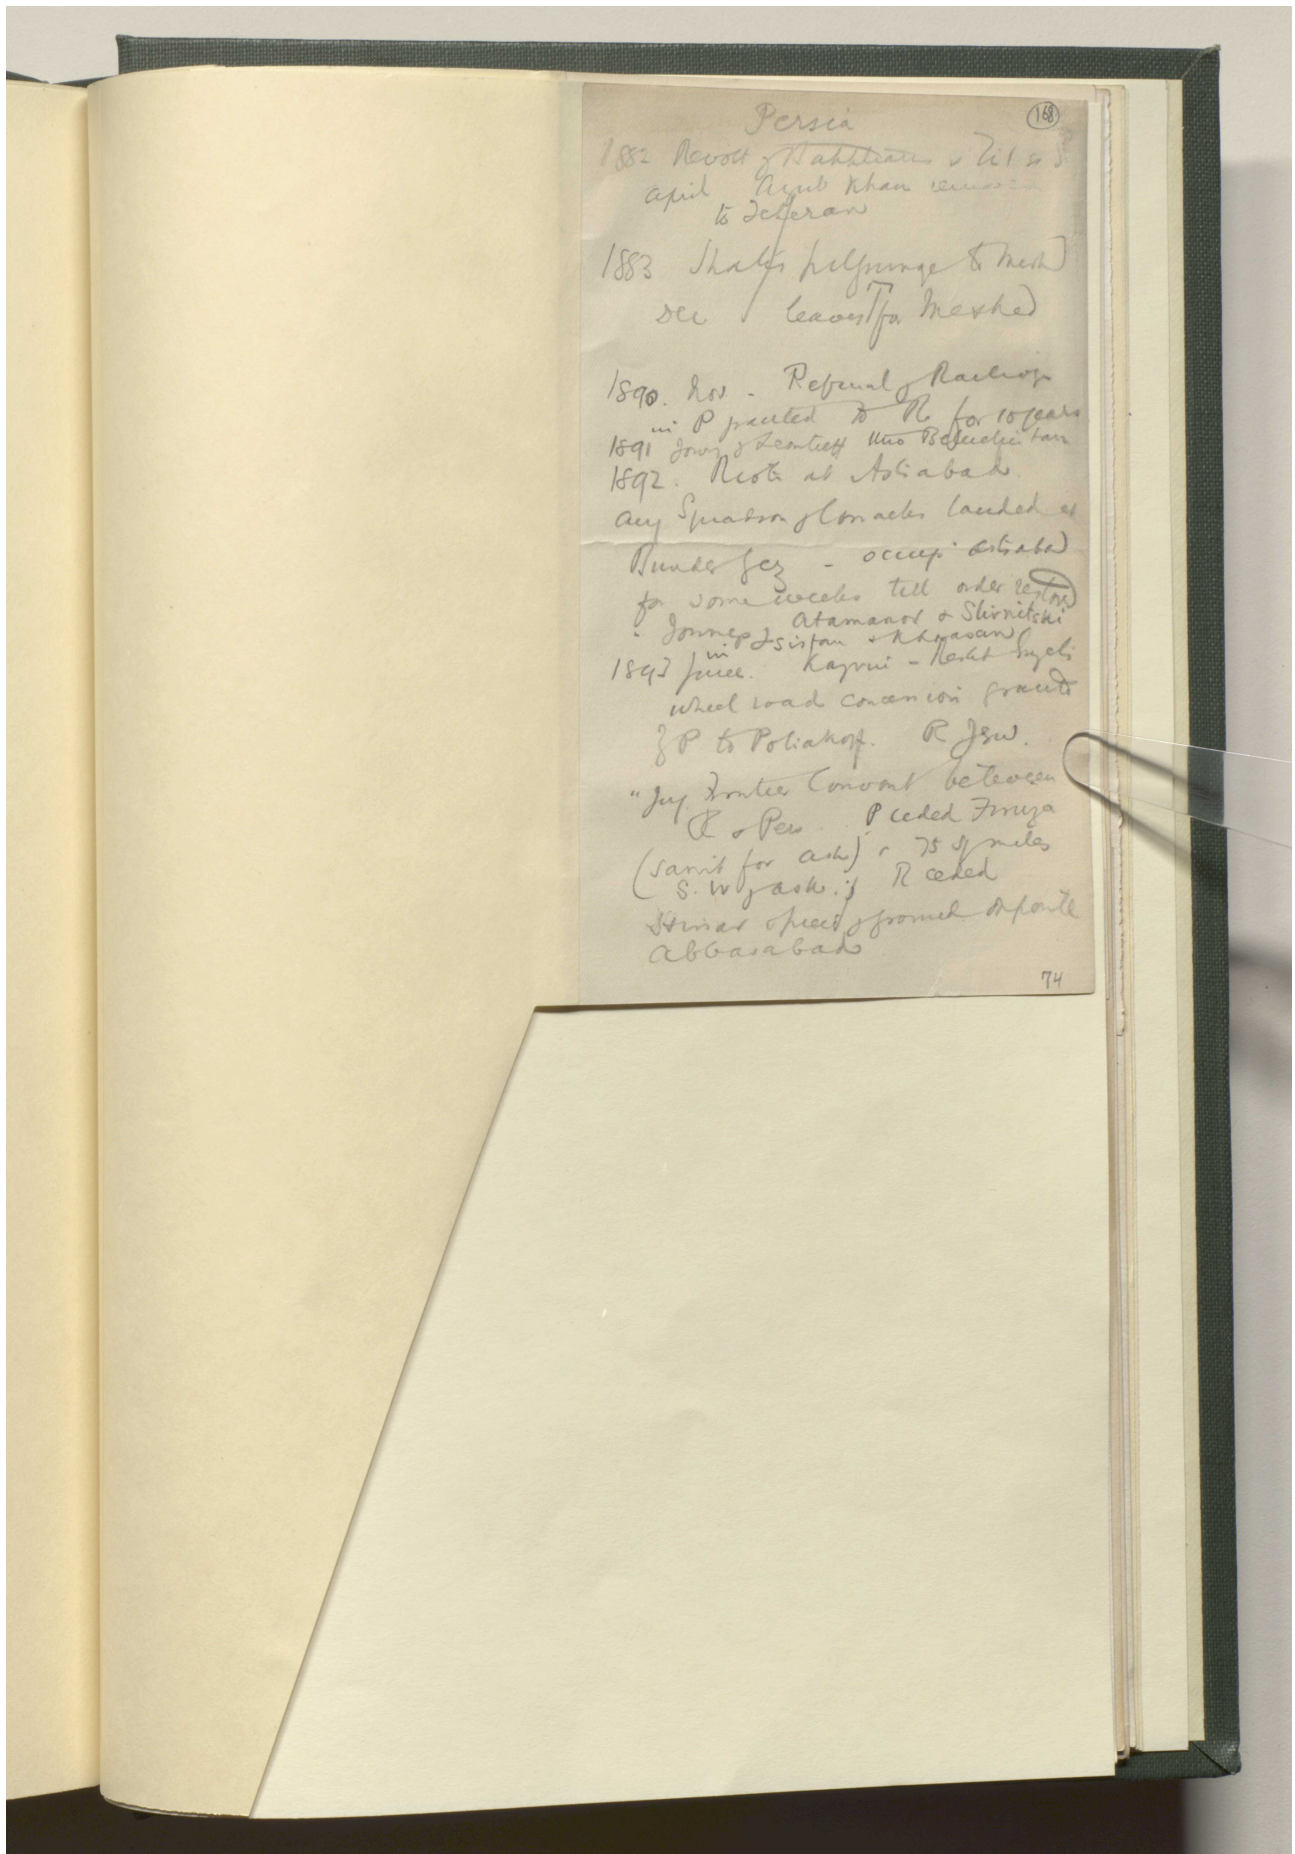 168
Persia
1882 Revolt of Bakhtiaris &
April Ayub Khan removed
to Teheran
1883 Shah's pilgrimage to Mesh
Dec leaves T for Meshed
1890. Nov - Refusal of Railways
in P granted to R for 10 years
1891 Journ of Leontieff into Beluchistan
1892. Riots at Astrabad
Aug Squadron of Cossacks landed at
Bunder Gez - occup Astrabad
for some weeks till order restored
Atamanov &
Journeys in Sistan & Khorasan
1893 June. Kazvin - Resht Enzeli
wheel road concession granted
P to Poliakoff. R
" July Frontier Convent between
R & Pers P ceded Firuza
(sanit for Ash) & 75 sq miles
S.W of Ask: R ceded
Hissar & piece of ground opposite
Abbasabad
74